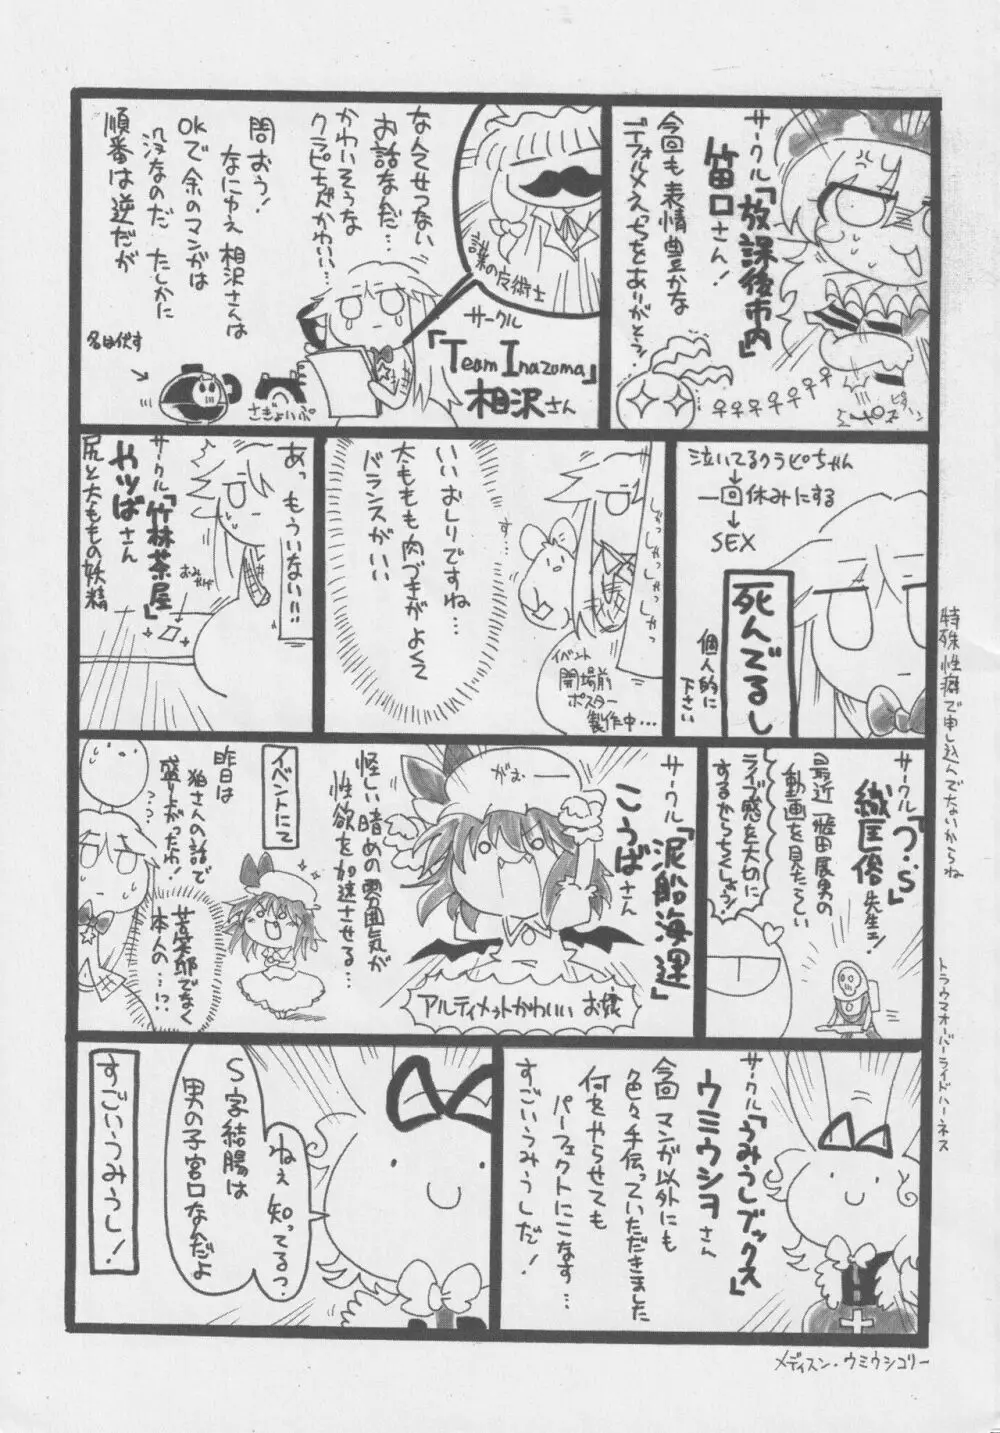 サークル「放課後市内」
笛口さん！
今回も表情豊かな
デフォルメえっちをありがとう！
なんてせつない
お話なんだ…
かわいそうな
クラピちゃんかわいい…
サークル
「Team Inazuma」
相沢さん
問おう！
なにゆえ 相沢さんは
OKで余のマンガは
没なのだ たしかに
順番は逆だが
名は伏す
さぎょいぷ
泣いてるクラピちゃん
↓
一回休みにする
↓
SEX
死んでるし
個人的に
下さい
イベント
開場前
ポスター
製作中…
す…
いいおしりですね…
太ももも肉づきがよくて
バランスがいい
あっ もういない!!
おみやげ
サークル「竹林茶屋」
やツばさん
尻と太ももの妖精
特殊性癖で申し込んでないからね
サークル「つ・S」
織匡俊先生ェ！
最近 飛田展男の
動画を見たらしい
ライブ感を大切に
するからちくしょう！
サークル「泥船海運」
こうばさん
がおーー
アルティメットかわいい お嬢
怪しい暗めの雰囲気が
性欲を加速させる…
イベントにて
昨日は
狼さんの話で
盛り上がったわ！
苦笑邸でなく
本人の…!?
トラウマオーバーライドハーネス
サークル「うみうしブックス」
ウミウシヨさん
今回 マンガ以外にも
色々手伝っていただきました
何をやらせても
パーフェクトにこなす…
すごいうみうしだ！
ねぇ 知ってるっ
S字結腸は
男の子宮口なんだよ
すごいうみうし！
メディスン・ウミウシコリー